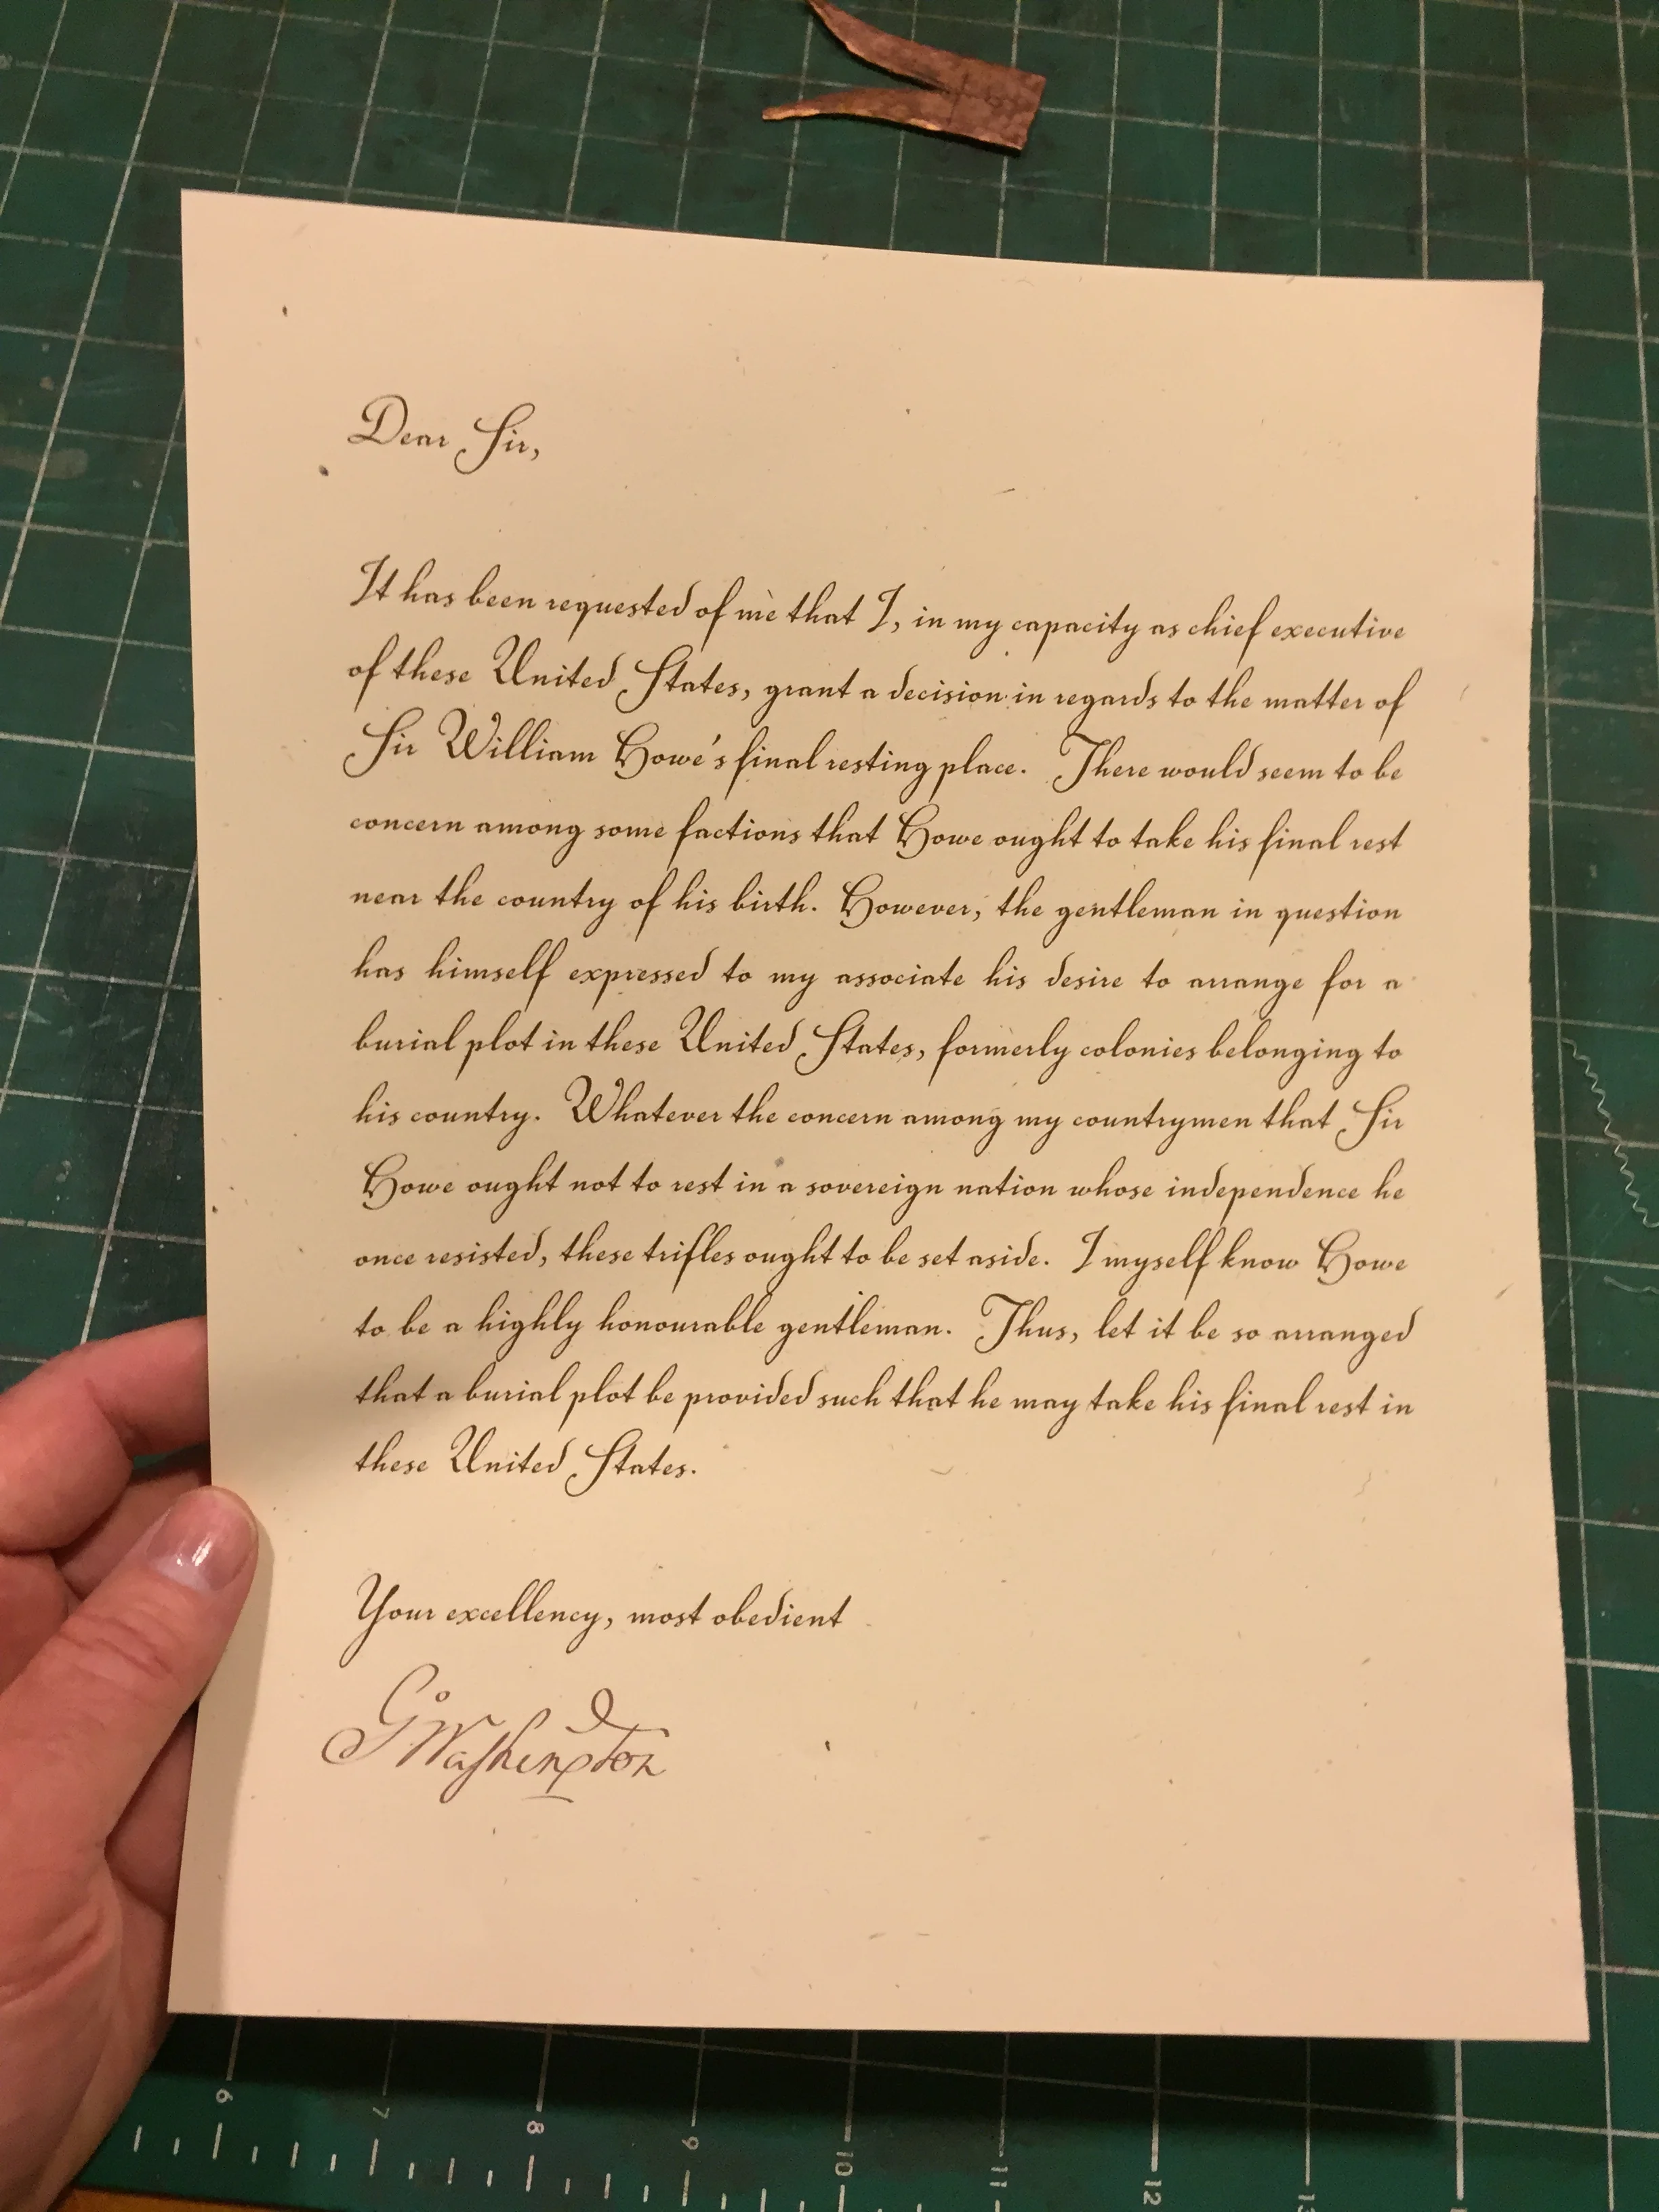 Dear Sir,
It has been requested of me that I, in my capacity as chief executive
of these United States, grant a decision in regards to the matter of
Sir William Howe's final resting place. There would seem to be
concern among some factions that Howe ought to take his final rest
near the country of his birth. However, the gentleman in question
has himself expressed to my associate his desire to arrange for a
burial plot in these United States, formerly colonies belonging to
his country. Whatever the concern among my countrymen that Sir
Howe ought not to rest in a sovereign nation whose independence he
once resisted, these trifles ought to be set aside. I myself know Howe
to be a highly honourable gentleman. Thus, let it be so arranged
that a burial plot be provided such that he may take his final rest in
these United States.
Your excellency, most obedient
Go Washington
6 7 8 9 10 11 12 13